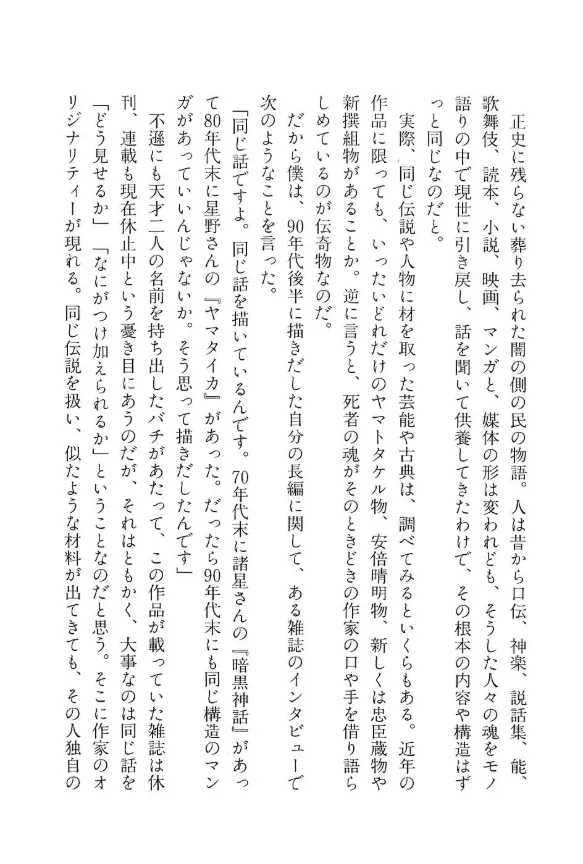 正史に残らない葬り去られた闇の側の民の物語。人は昔から口伝、神楽、説話集、能、
歌舞伎、読本、小説、映画、マンガと、媒体の形は変われども、そうした人々の魂をモノ
語りの中で現世に引き戻し、話を聞いて供養してきたわけで、その根本の内容や構造はず
っと同じなのだと。
実際、同じ伝説や人物に材を取った芸能や古典は、調べてみるといくらもある。近年の
作品に限っても、いったいどれだけのヤマトタケル物、安倍晴明物、新しくは忠臣蔵物や
新撰組物があることか。逆に言うと、死者の魂がそのときどきの作家の口や手を借り語ら
しめているのが伝奇物なのだ。
だから僕は、90年代後半に描きだした自分の長編に関して、ある雑誌のインタビューで
次のようなことを言った。
「同じ話ですよ。同じ話を描いているんです。70年代末に諸星さんの『暗黒神話』があっ
て80年代末に星野さんの『ヤマタイカ』があった。だったら90年代末にも同じ構造のマン
ガがあっていいんじゃないか。そう思って描きだしたんです」
不遜にも天才二人の名前を持ち出したバチがあたって、この作品が載っていた雑誌は休
刊、連載も現在休止中という憂き目にあうのだが、それはともかく、大事なのは同じ話を
「どう見せるか」「なにがつけ加えられるか」ということなのだと思う。そこに作家のオ
リジナリティーが現れる。同じ伝説を扱い、似たような材料が出てきても、その人独自の